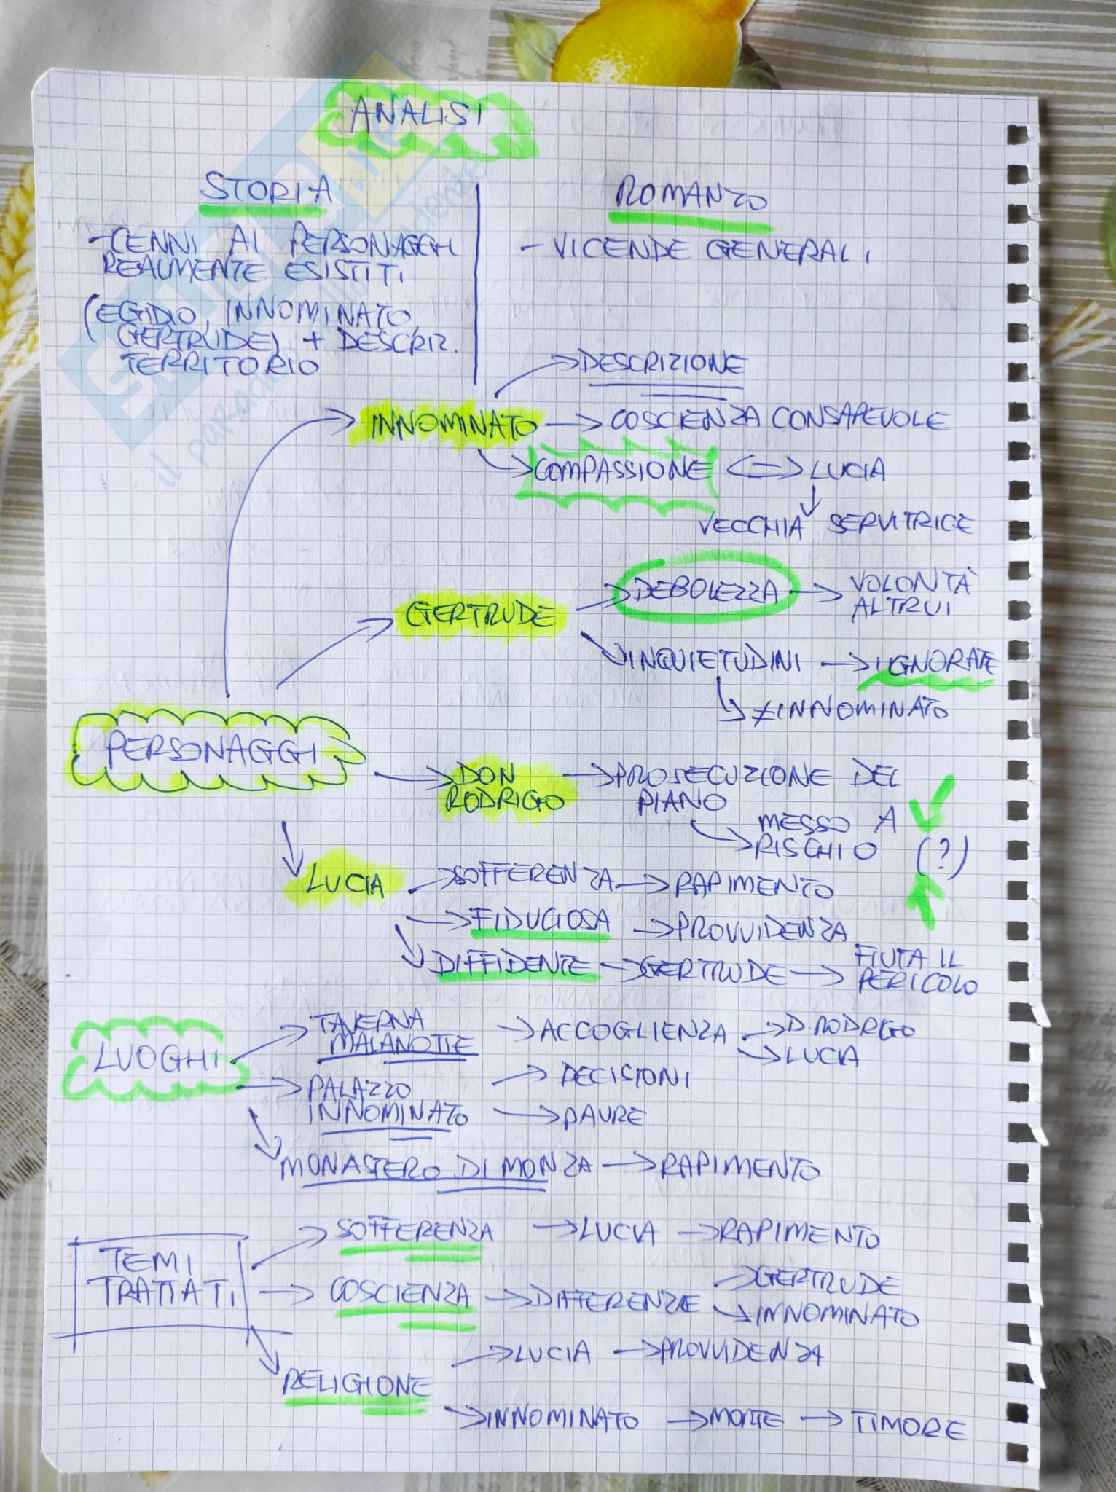 ANALISI
STORIA
- CENNI AI PERSONAGGI
REALMENTE ESISTITI
(EGIDIO, INNOMINATO,
GERTRUDE) + DESCRIZ.
TERRITORIO
ROMANZO
- VICENDE GENERALI
INNOMINATO → DESCRIZIONE
→ COSCIENZA CONSAPEVOLE
→ COMPASSIONE <=> LUCIA
↓
VECCHIA SERVITRICE
GERTRUDE → DEBOLEZZA → VOLONTÀ
ALTRUI
→ INQUIETUDINI → IGNORATE
→ ≠ INNOMINATO
PERSONAGGI
→ DON
RODRIGO → PROSECUZIONE DEL
PIANO
→ MESSO A
RISCHIO (?)
LUCIA → SOFFERENZA → RAPIMENTO
→ FIDUCIOSA → PROVVIDENZA
→ DIFFIDENTE → GERTRUDE → FIUTA IL
PERICOLO
LUOGHI → TAVERNA
MALANOTTE → ACCOGLIENZA → D. RODRIGO
→ LUCIA
→ PALAZZO
INNOMINATO → DECISIONI
→ PAURE
→ MONASTERO DI MONZA → RAPIMENTO
TEMI
TRATTATI → SOFFERENZA → LUCIA → RAPIMENTO
→ COSCIENZA → DIFFERENZE → GERTRUDE
→ INNOMINATO
→ RELIGIONE → LUCIA → PROVVIDENZA
→ INNOMINATO → MORTE → TIMORE